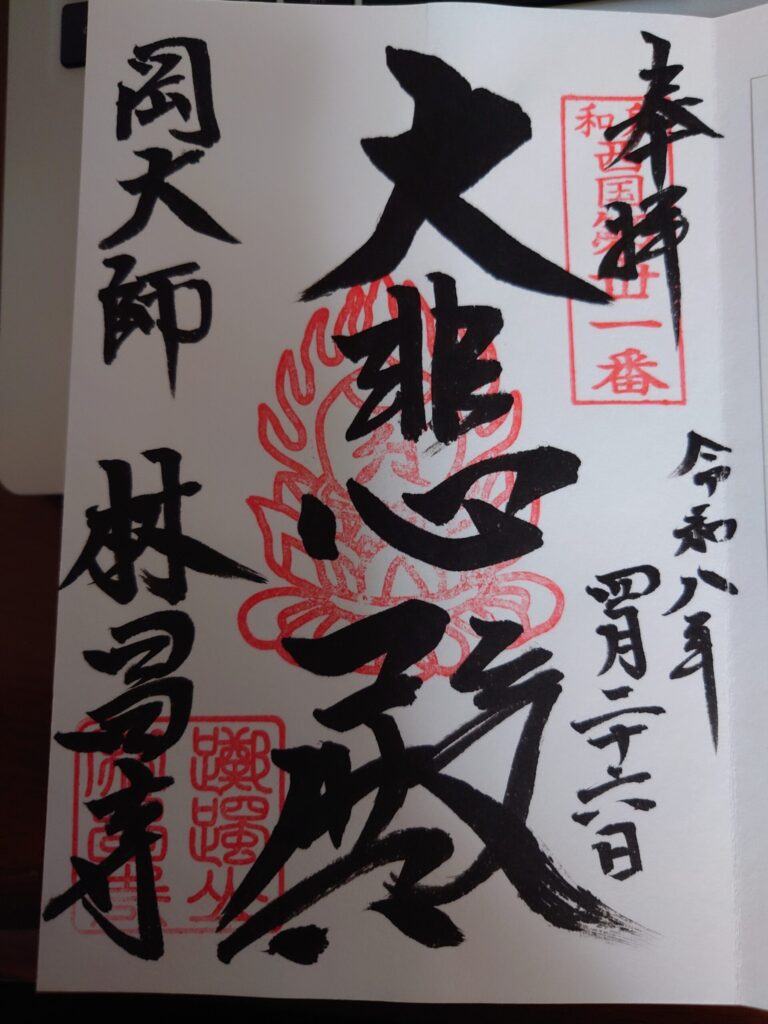 奉拝
和泉西国第廿一番
令和八年
四月二十六日
大悲殿
岡大師
林昌寺
躑躅山
林昌寺